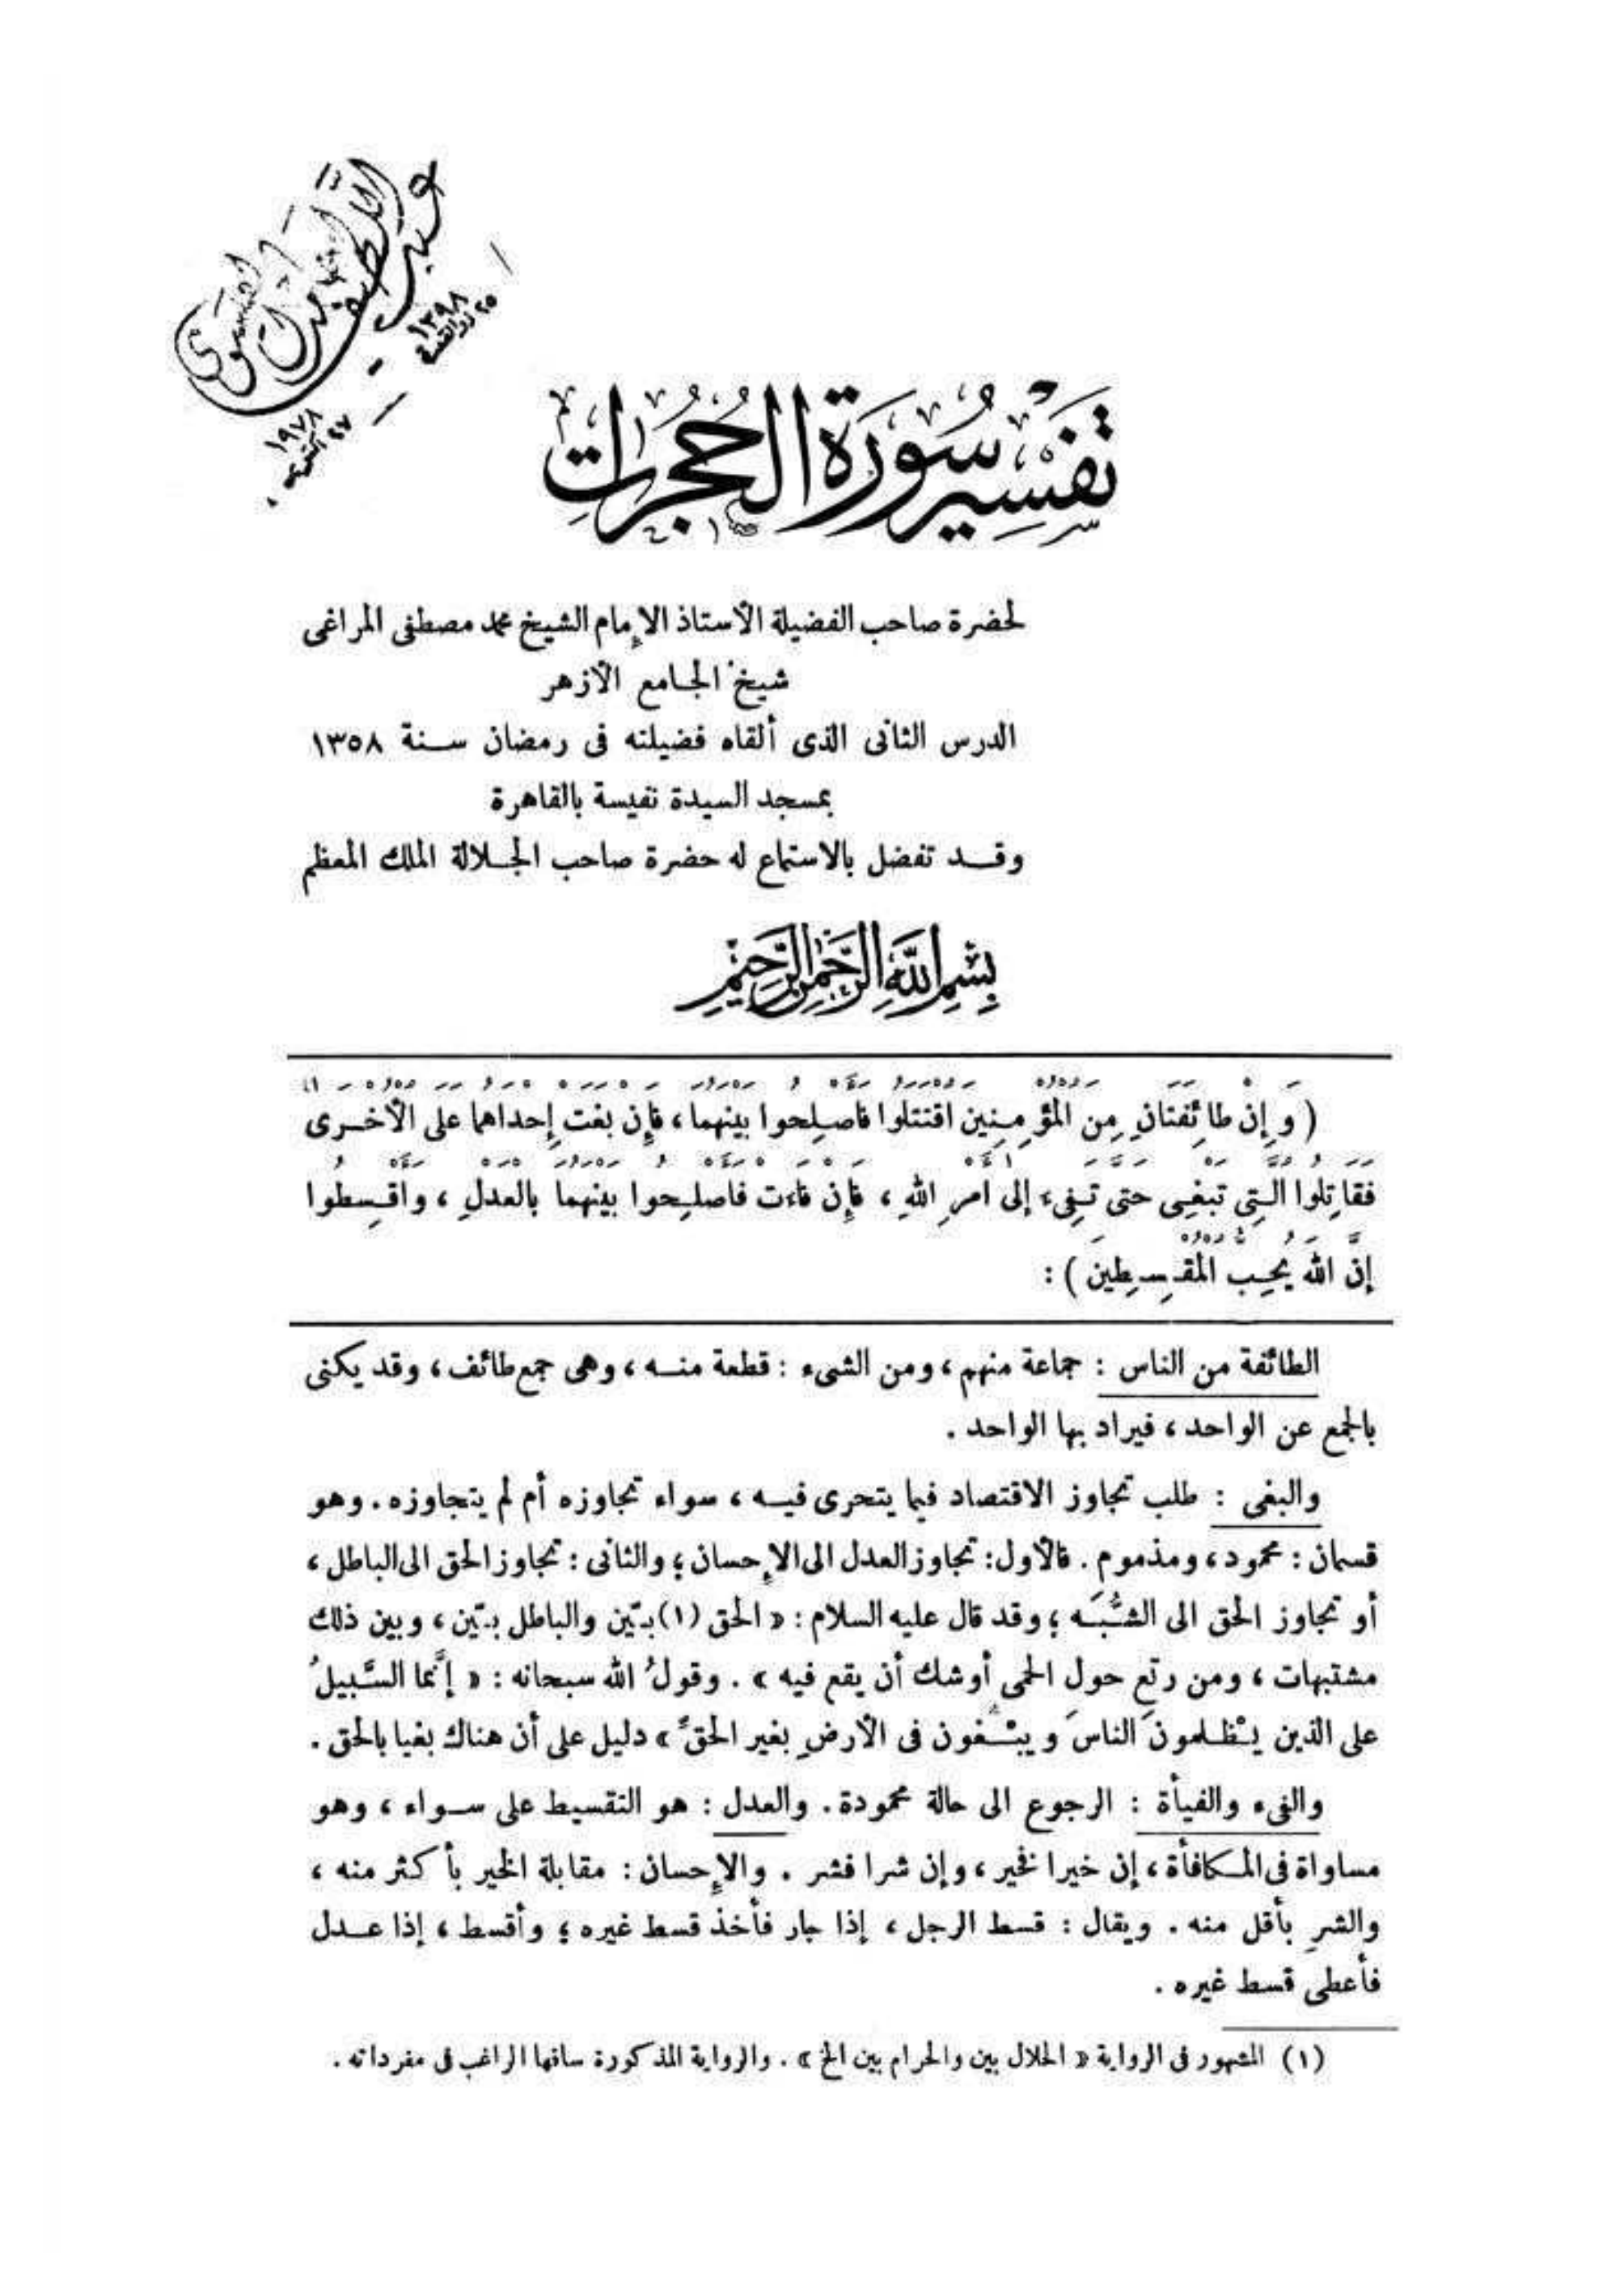 عبد اللطيف
٢٥ ذو القعدة ١٣٩٨
٢٧ أكتوبر ١٩٧٨
تَفْسِيرُ سُورَةِ الْحُجُرَاتِ
لحضرة صاحب الفضيلة الأستاذ الإمام الشيخ محمد مصطفى المراغى
شيخ الجامع الأزهر
الدرس الثانى الذى ألقاه فضيلته فى رمضان سنة ١٣٥٨
بمسجد السيدة نفيسة بالقاهرة
وقد تفضل بالاستماع له حضرة صاحب الجلالة الملك المعظم
بِسْمِ اللَّهِ الرَّحْمَنِ الرَّحِيمِ
(وَإِنْ طَائِفَتَانِ مِنَ الْمُؤْمِنِينَ اقْتَتَلُوا فَأَصْلِحُوا بَيْنَهُمَا، فَإِنْ بَغَتْ إِحْدَاهُمَا عَلَى الْأُخْرَى
فَقَاتِلُوا الَّتِي تَبْغِى حَتَّى تَفِىءَ إِلَى أَمْرِ اللهِ، فَإِنْ فَاءَتْ فَأَصْلِحُوا بَيْنَهُمَا بِالْعَدْلِ، وَأَقْسِطُوا
إِنَّ اللهَ يُحِبُّ الْمُقْسِطِينَ):
الطائفة من الناس : جماعة منهم، ومن الشىء : قطعة منه، وهى جمع طائف، وقد يكنى
بالجمع عن الواحد، فيراد بها الواحد .
والبغى : طلب تجاوز الاقتصاد فيما يتحرى فيه، سواء تجاوزه أم لم يتجاوزه. وهو
قسمان : محمود، ومذموم. فالأول: تجاوز العدل الى الإحسان؛ والثانى: تجاوز الحق الى الباطل،
أو تجاوز الحق الى الشُّبَه ؛ وقد قال عليه السلام : « الحق (١) بيّن والباطل بيّن، وبين ذلك
مشتبهات، ومن رتع حول الحمى أوشك أن يقع فيه » . وقولُ الله سبحانه : « إنَّما السَّبيلُ
على الذين يَظْلمون الناسَ ويبْغون فى الأرضِ بغير الحقِّ » دليل على أن هناك بغيا بالحق .
والفىء والفيأة : الرجوع الى حالة محمودة. والعدل : هو التقسيط على سواء، وهو
مساواة فى المكافأة، إن خيرا فخير، وإن شرا فشر . والإحسان : مقابلة الخير بأكثر منه،
والشرِ بأقل منه . ويقال : قسط الرجل، إذا جار فأخذ قسط غيره ؛ وأقسط، إذا عدل
فأعطى قسط غيره .
(١) المشهور فى الرواية « الحلال بين والحرام بين الخ » . والرواية المذكورة ساقها الراغب فى مفرداته .